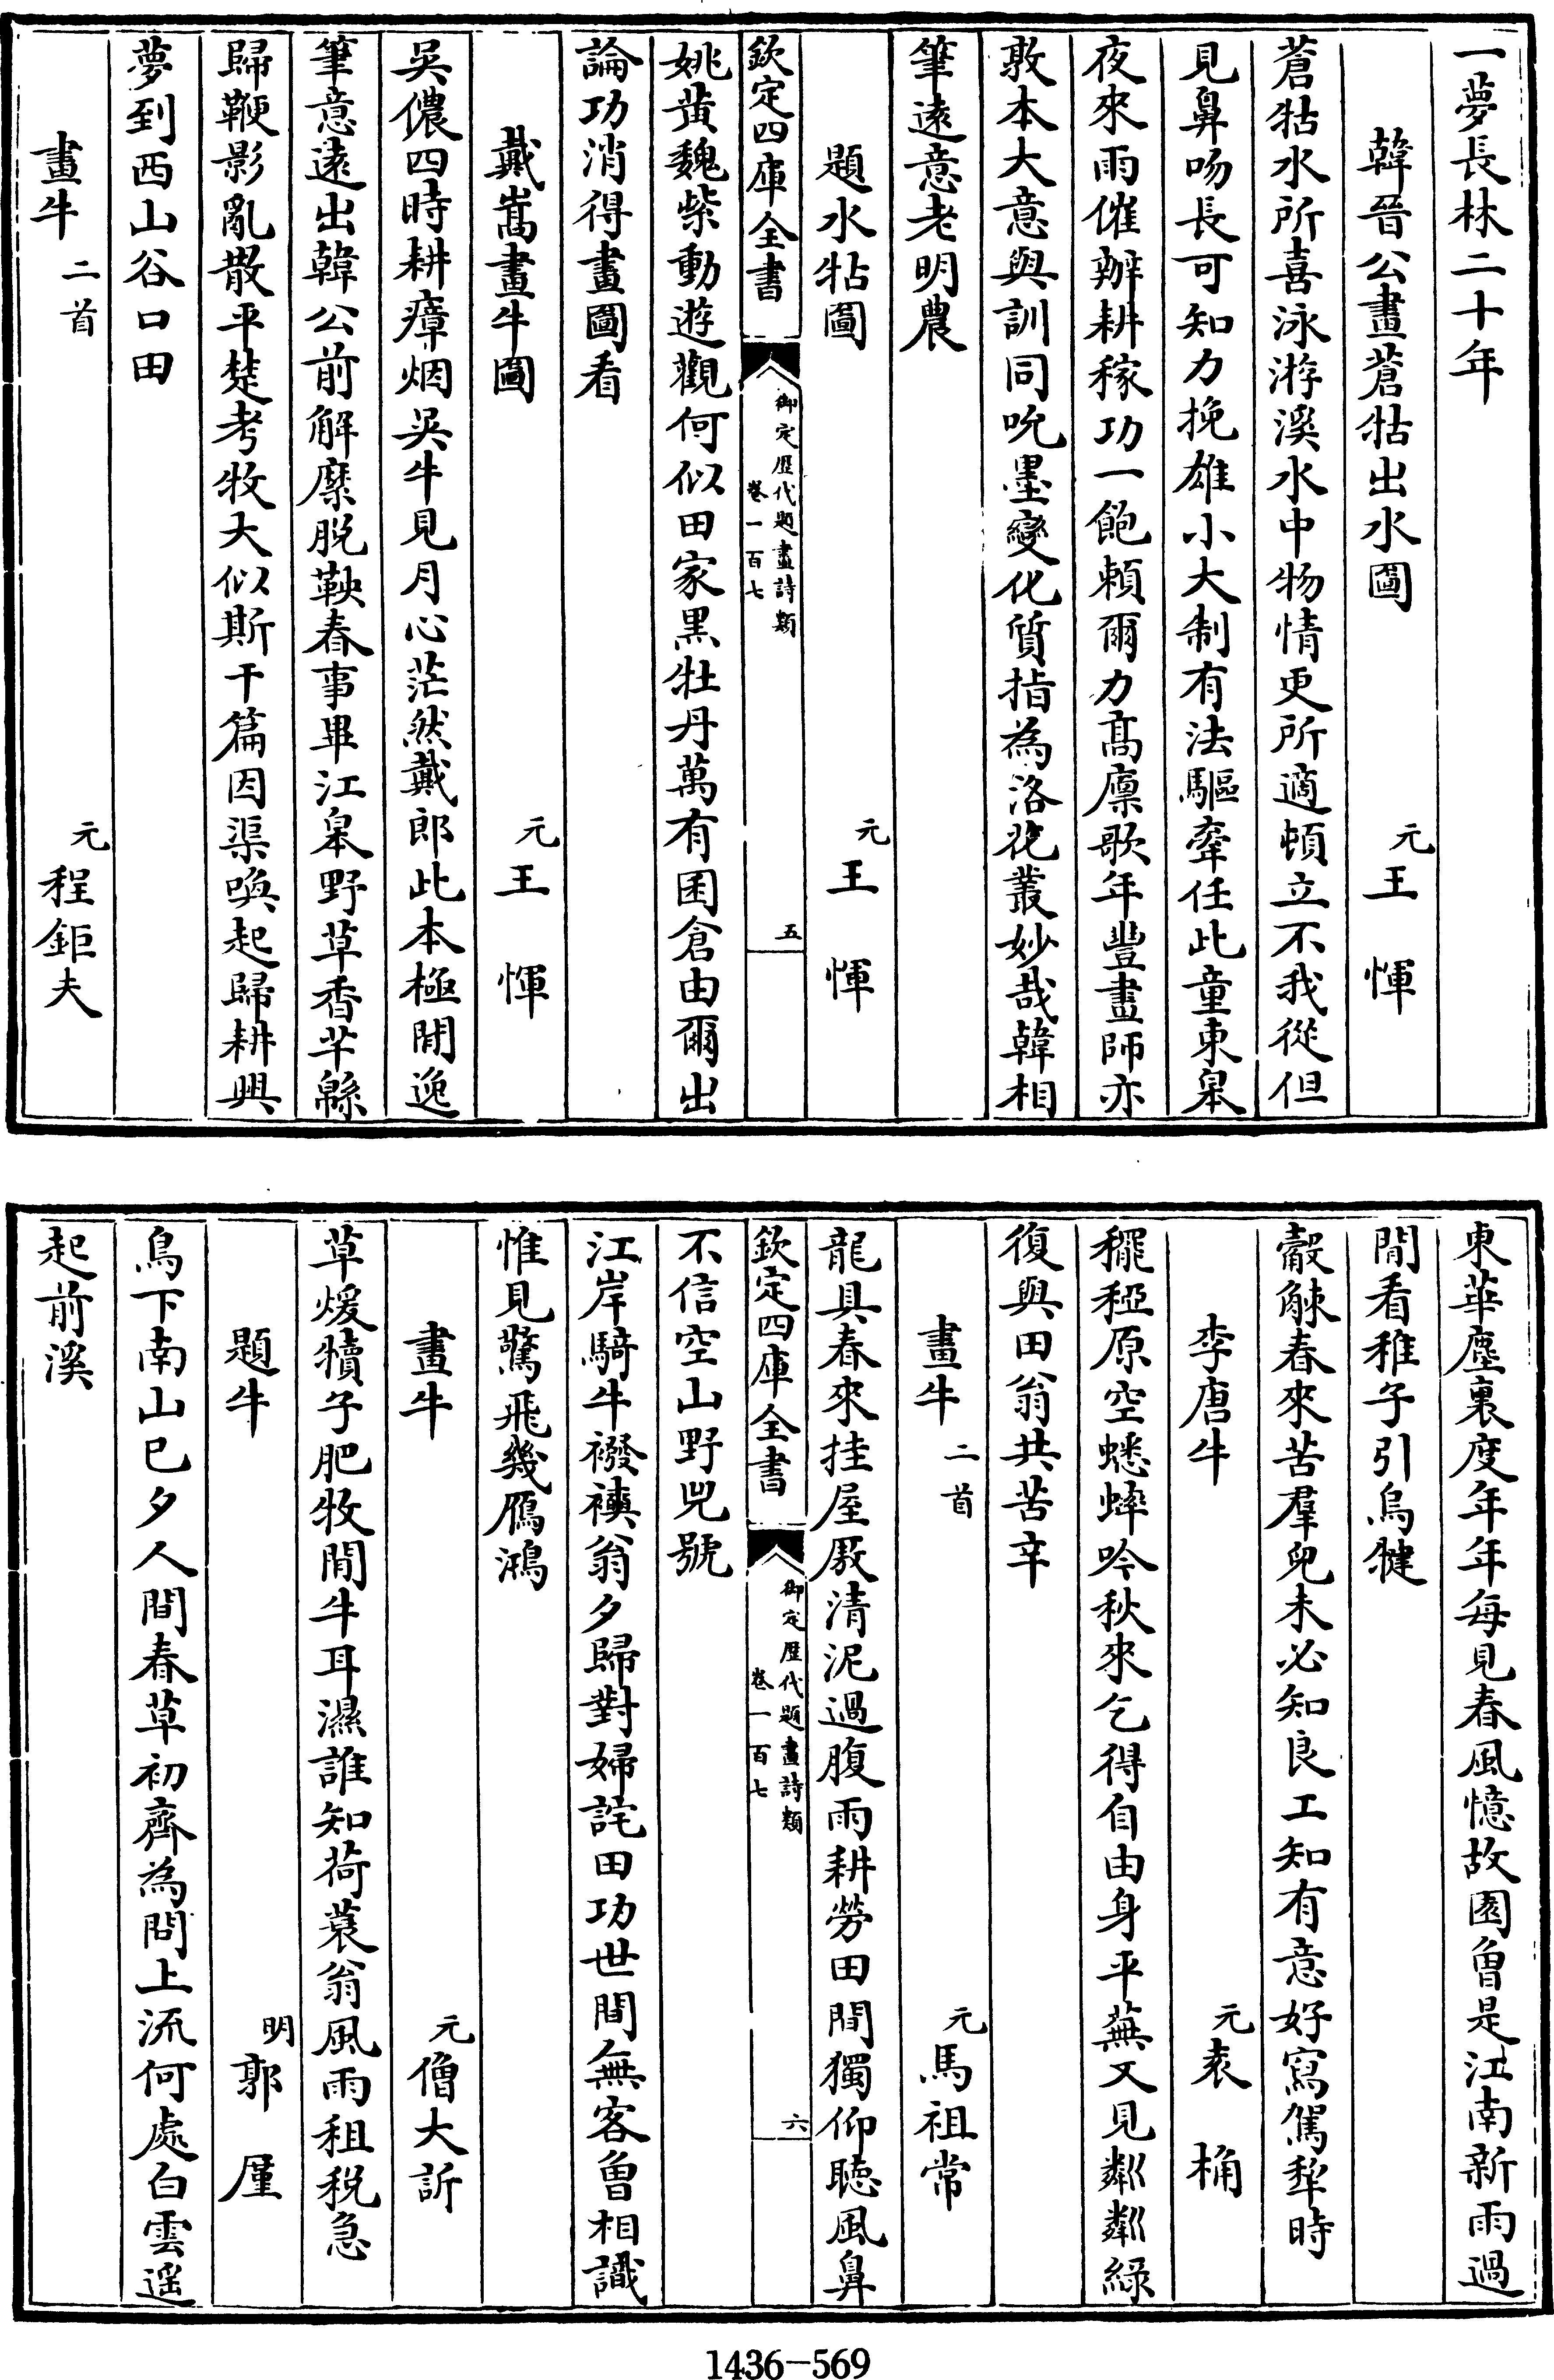 一夢長林二十年
韓晉公畫蒼牯出水圖　元王惲
蒼牯水所喜泳游溪水中物情更所適頓立不我從但
見鼻吻長可知力挽雄小大制有法驅牽任此童東皋
夜來雨催辦耕稼功一飽賴爾力高廪歌年豐畫師亦
敦本大意與訓同吮墨變化質指為洛花叢妙哉韓相
筆遠意老明農
題水牯圖　元王惲
欽定四庫全書
御定歷代題畫詩類
卷一百七
五
姚黄魏紫動遊觀何似田家黒牡丹萬有囷倉由爾出
論功消得畫圖看
戴嵩畫牛圖　元王惲
吳儂四時耕瘴烟吳牛見月心茫然戴郎此本極閒逸
筆意遠出韓公前解縻脱鞅春事畢江皋野草香芊緜
歸鞭影亂散平楚考牧大似斯干篇因渠喚起歸耕興
夢到西山谷口田
畫牛二首　元程鉅夫
東華塵裏度年年每見春風憶故園曾是江南新雨過
閒看稚子引烏犍
觳觫春來苦羣兒未必知良工知有意好寫駕犂時
李唐牛　元袁桷
穲稏原空蟋蟀吟秋來乞得自由身平蕪又見粼粼緑
復與田翁共苦辛
畫牛二首　元馬祖常
龍具春來挂屋厫清泥過腹雨耕勞田間獨仰聴風鼻
欽定四庫全書
御定歷代題畫詩類
卷一百七
六
不信空山野兕號
江岸騎牛襏襫翁夕歸對婦詫田功世間無客曾相識
惟見驚飛幾鴈鴻
畫牛　元僧大訢
草煖犢子肥牧閒牛耳濕誰知荷蓑翁風雨租税急
題牛　明郭厪
鳥下南山已夕人間春草初齊為問上流何處白雲遥
起前溪
1436-569